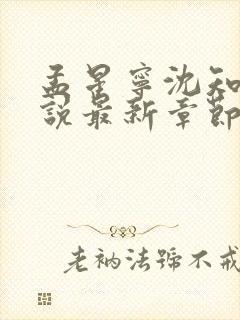 孟星寧沈知
說最新章節
老衲法號不戒